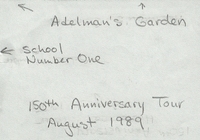 Adelman's Garden
← School
Number One
150th Anniversary Tour
August 1989